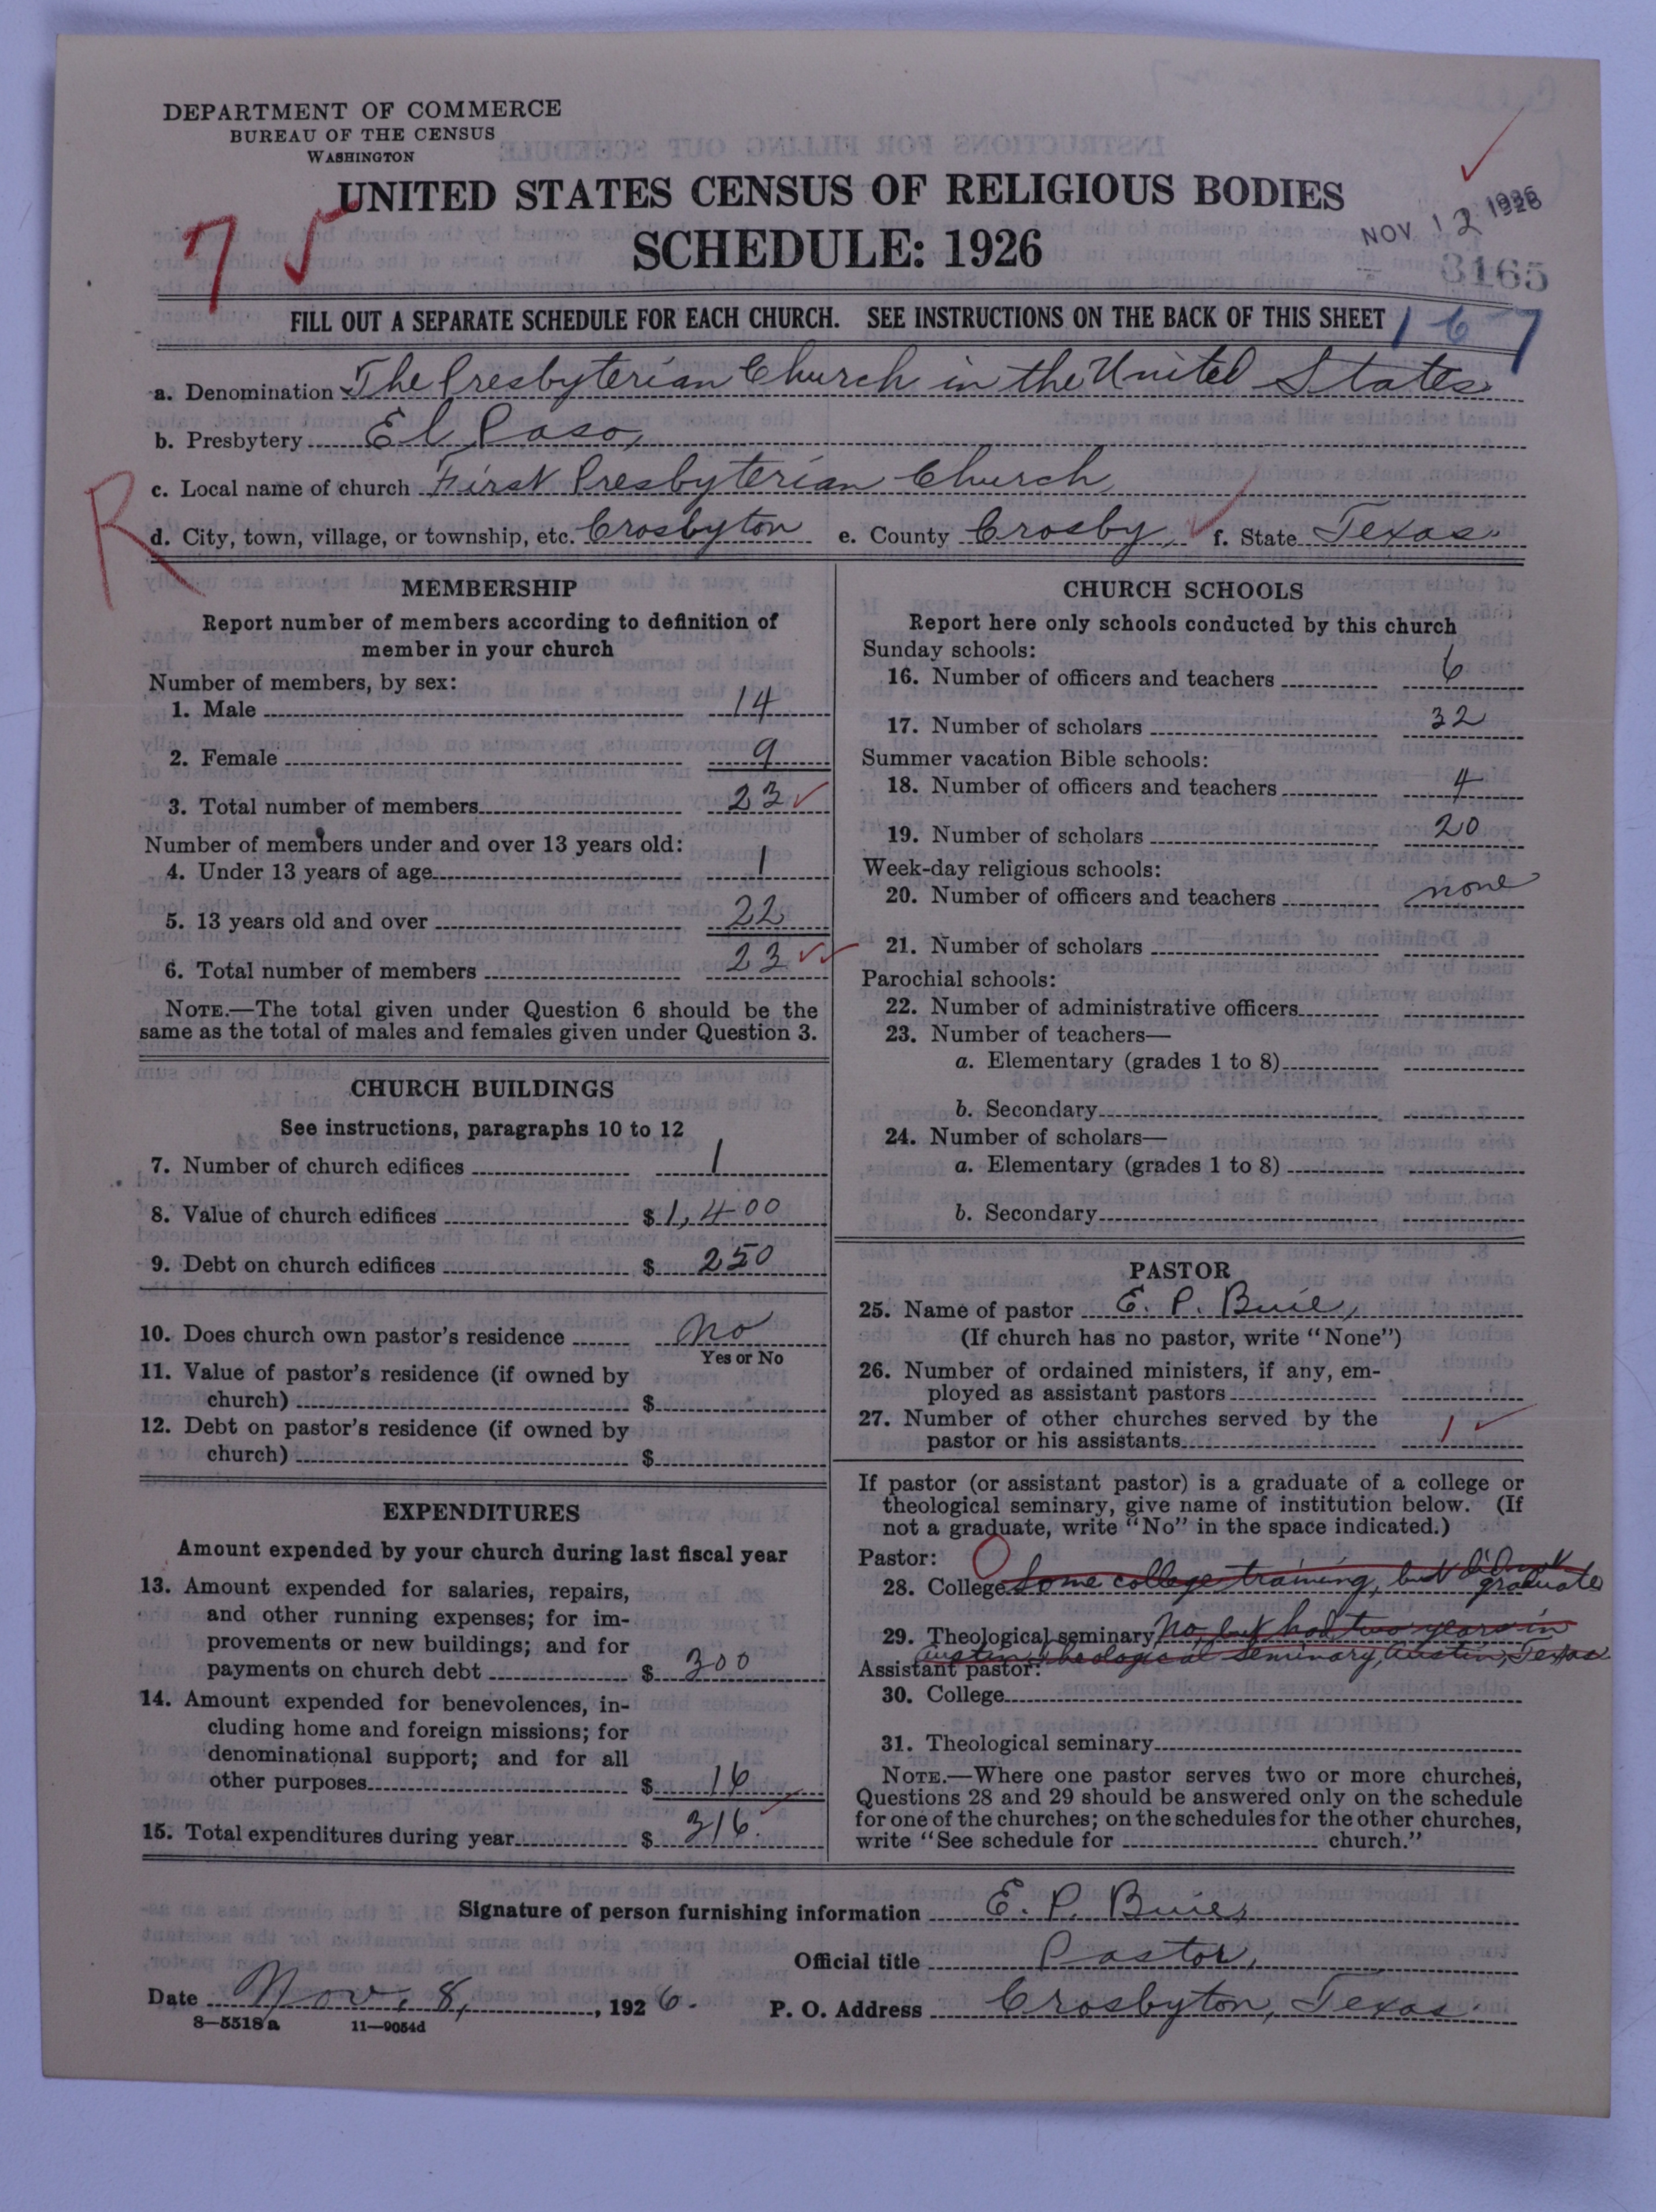 DEPARTMENT OF COMMERCE
BUREAU OF THE CENSUS
WASHINGTON
UNITED STATES CENSUS OF RELIGIOUS BODIES
SCHEDULE: 1926
NOV 12 1926
3165
7
FILL OUT A SEPARATE SCHEDULE FOR EACH CHURCH. SEE INSTRUCTIONS ON THE BACK OF THIS SHEET
167
a. Denomination The Presbyterian Church in the United States
b. Presbytery El Paso,
c. Local name of church First Presbyterian Church
R
d. City, town, village, or township, etc. Crosbyton e. County Crosby, f. State Texas.
MEMBERSHIP
Report number of members according to definition of
member in your church
Number of members, by sex:
1. Male 14
2. Female 9
3. Total number of members 23
Number of members under and over 13 years old:
4. Under 13 years of age 1
5. 13 years old and over 22
6. Total number of members 23
NOTE.—The total given under Question 6 should be the
same as the total of males and females given under Question 3.
CHURCH BUILDINGS
See instructions, paragraphs 10 to 12
7. Number of church edifices 1
8. Value of church edifices $ 1,400
9. Debt on church edifices $ 250
10. Does church own pastor's residence No
Yes or No
11. Value of pastor's residence (if owned by
church) $
12. Debt on pastor's residence (if owned by
church) $
EXPENDITURES
Amount expended by your church during last fiscal year
13. Amount expended for salaries, repairs,
and other running expenses; for im-
provements or new buildings; and for
payments on church debt $ 300
14. Amount expended for benevolences, in-
cluding home and foreign missions; for
denominational support; and for all
other purposes $ 16
15. Total expenditures during year $ 316.
CHURCH SCHOOLS
Report here only schools conducted by this church
Sunday schools:
16. Number of officers and teachers 6
17. Number of scholars 32
Summer vacation Bible schools:
18. Number of officers and teachers 4
19. Number of scholars 20
Week-day religious schools:
20. Number of officers and teachers none
21. Number of scholars
Parochial schools:
22. Number of administrative officers
23. Number of teachers—
a. Elementary (grades 1 to 8)
b. Secondary
24. Number of scholars—
a. Elementary (grades 1 to 8)
b. Secondary
PASTOR
25. Name of pastor E. P. Buie,
(If church has no pastor, write "None")
26. Number of ordained ministers, if any, em-
ployed as assistant pastors
27. Number of other churches served by the
pastor or his assistants 1
If pastor (or assistant pastor) is a graduate of a college or
theological seminary, give name of institution below. (If
not a graduate, write "No" in the space indicated.)
Pastor:
28. College Some college training, but didn't
graduate
29. Theological seminary No, but had two years in
Austin Theological Seminary, Austin, Texas
Assistant pastor:
30. College
31. Theological seminary
NOTE.—Where one pastor serves two or more churches,
Questions 28 and 29 should be answered only on the schedule
for one of the churches; on the schedules for the other churches,
write "See schedule for church."
Signature of person furnishing information E. P. Buie,
Official title Pastor,
Date Nov. 8, , 1926. P. O. Address Crosbyton, Texas.
8—5518a 11—9054d